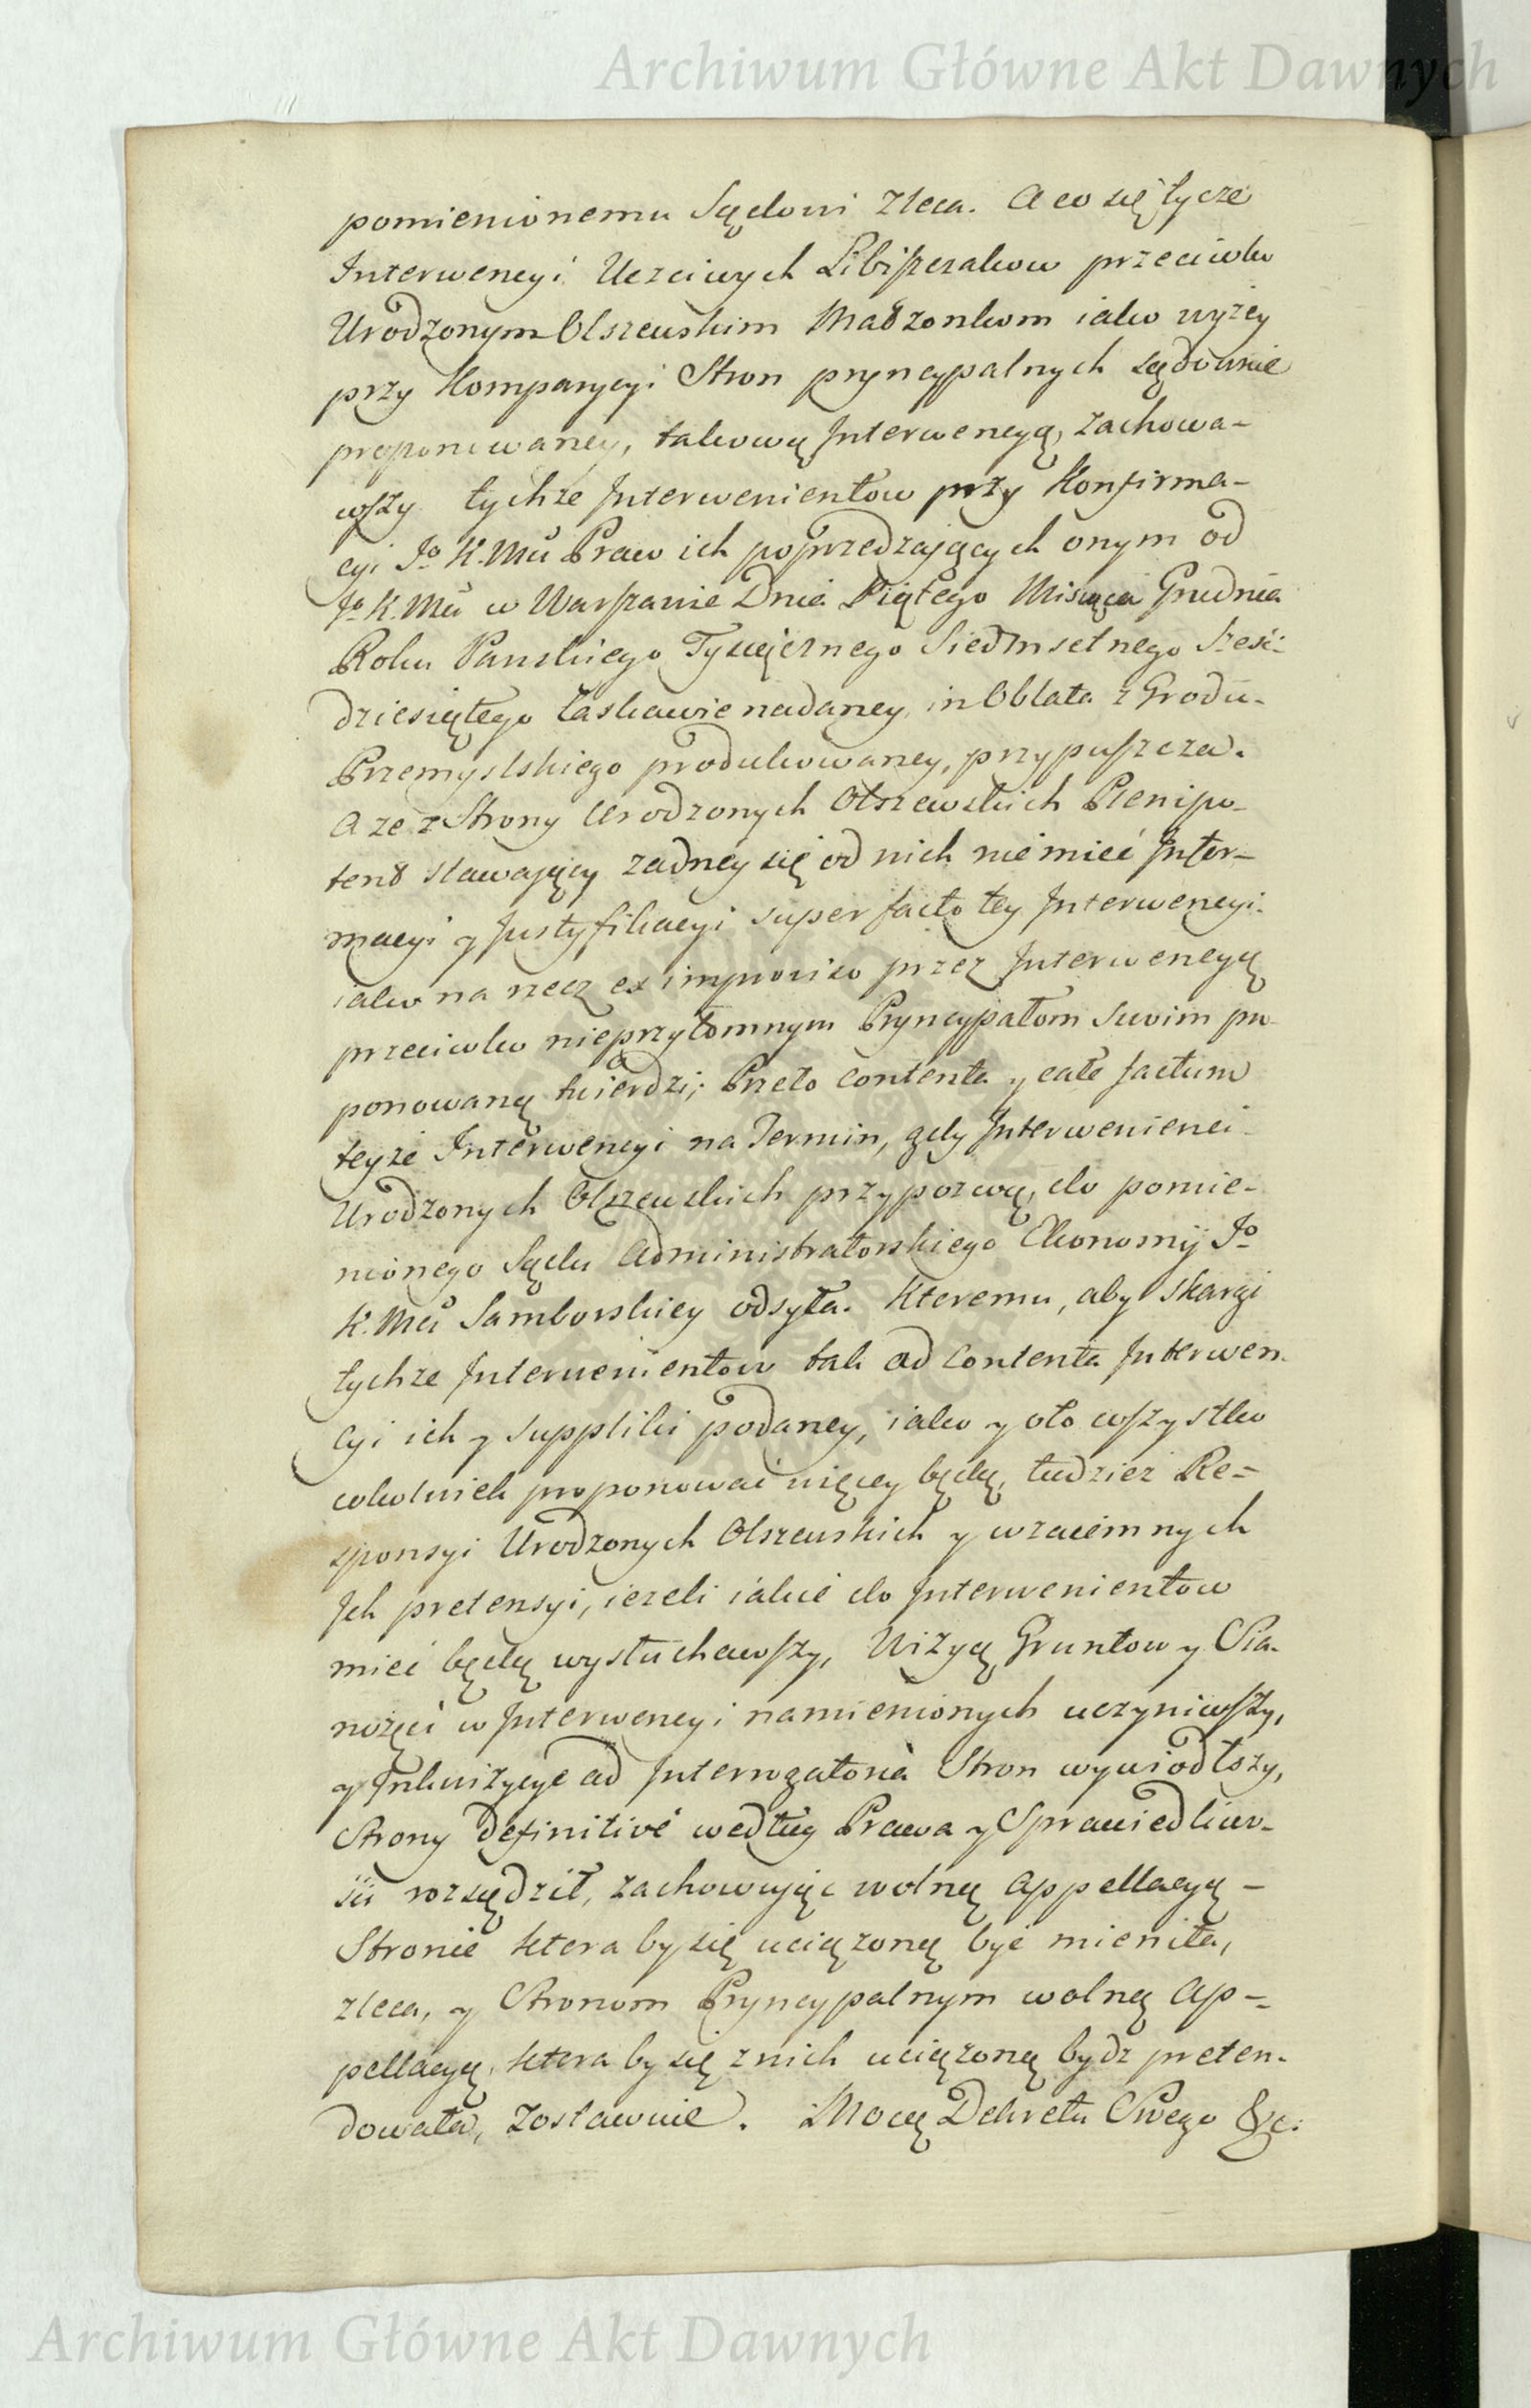 Archiwum Główne Akt Dawnych
pomienionemu Sądowi zleca. A co się tycze
Interwencyi Uczciwych Libiszczakow przeciwko
Urodzonym Olszewskim Małżonkom iako wyżey
przy Komparycyi Stron pryncypalnych sądownie
proponowaney, takową Interwencyą, zachowa-
wszy tychże Interwenientow przy Konfirma-
cyi Jº K. Mci Praw ich poprzedzających onym od
Jº K. Mci w Warszawie Dnia Piątego Miesiąca Grudnia
Roku Panskiego Tysiącznego Siedmsetnego Sześć-
dziesiątego łaskawie nadaney, in Oblata z Grodu
Przemyslskiego produkowaney, przypuszcza.
A że z Strony Urodzonych Olszewskich Plenipo-
tent stawający żadney się od nich nie mieć Infor-
macyi y Justyfikacyi super facto tey Interwencyi
iako na rzecz ex improviso przez Interwencyą
przeciwko nieprzytomnym Pryncypałom Swoim pro-
ponowaną twierdzi; Przeto contenta y całe factum
teyże Interwencyi na Termin, gdy Interwenienci
Urodzonych Olszewskich przypozwą, do pomie-
nionego Sądu Administratorskiego Ekonomij Jº
K. Mci Samborskiey odsyła. Ktoremu, aby skargi
tychże Interwenientow tak ad contenta Interwen-
cyi ich y suppliki podaney, iako y oto wszystko
cokolwiek proponować więcey będą, tudzież Re-
sponsyi Urodzonych Olszewskich y wzaiemnych
Ich pretensyi, ieżeli iakie do Interwenientow
mieć będą wysłuchawszy, Wizyą Gruntow y Sia-
nożęci w Interwencyi namienionych uczyniwszy,
y Inkwizycye ad Interrogatoria Stron wywiodłszy,
Strony definitive według Prawa y Sprawiedliwo-
ści rozsądził, zachowując wolną appellacyą -
Stronie ktora by się uciążoną być mieniła,
zleca, y Stronom Pryncypalnym wolną Ap-
pellacyą, ktora by się z nich uciążoną bydz preten-
dowała, zostawuie. Mocą Dekretu Swego &c.
Archiwum Główne Akt Dawnych